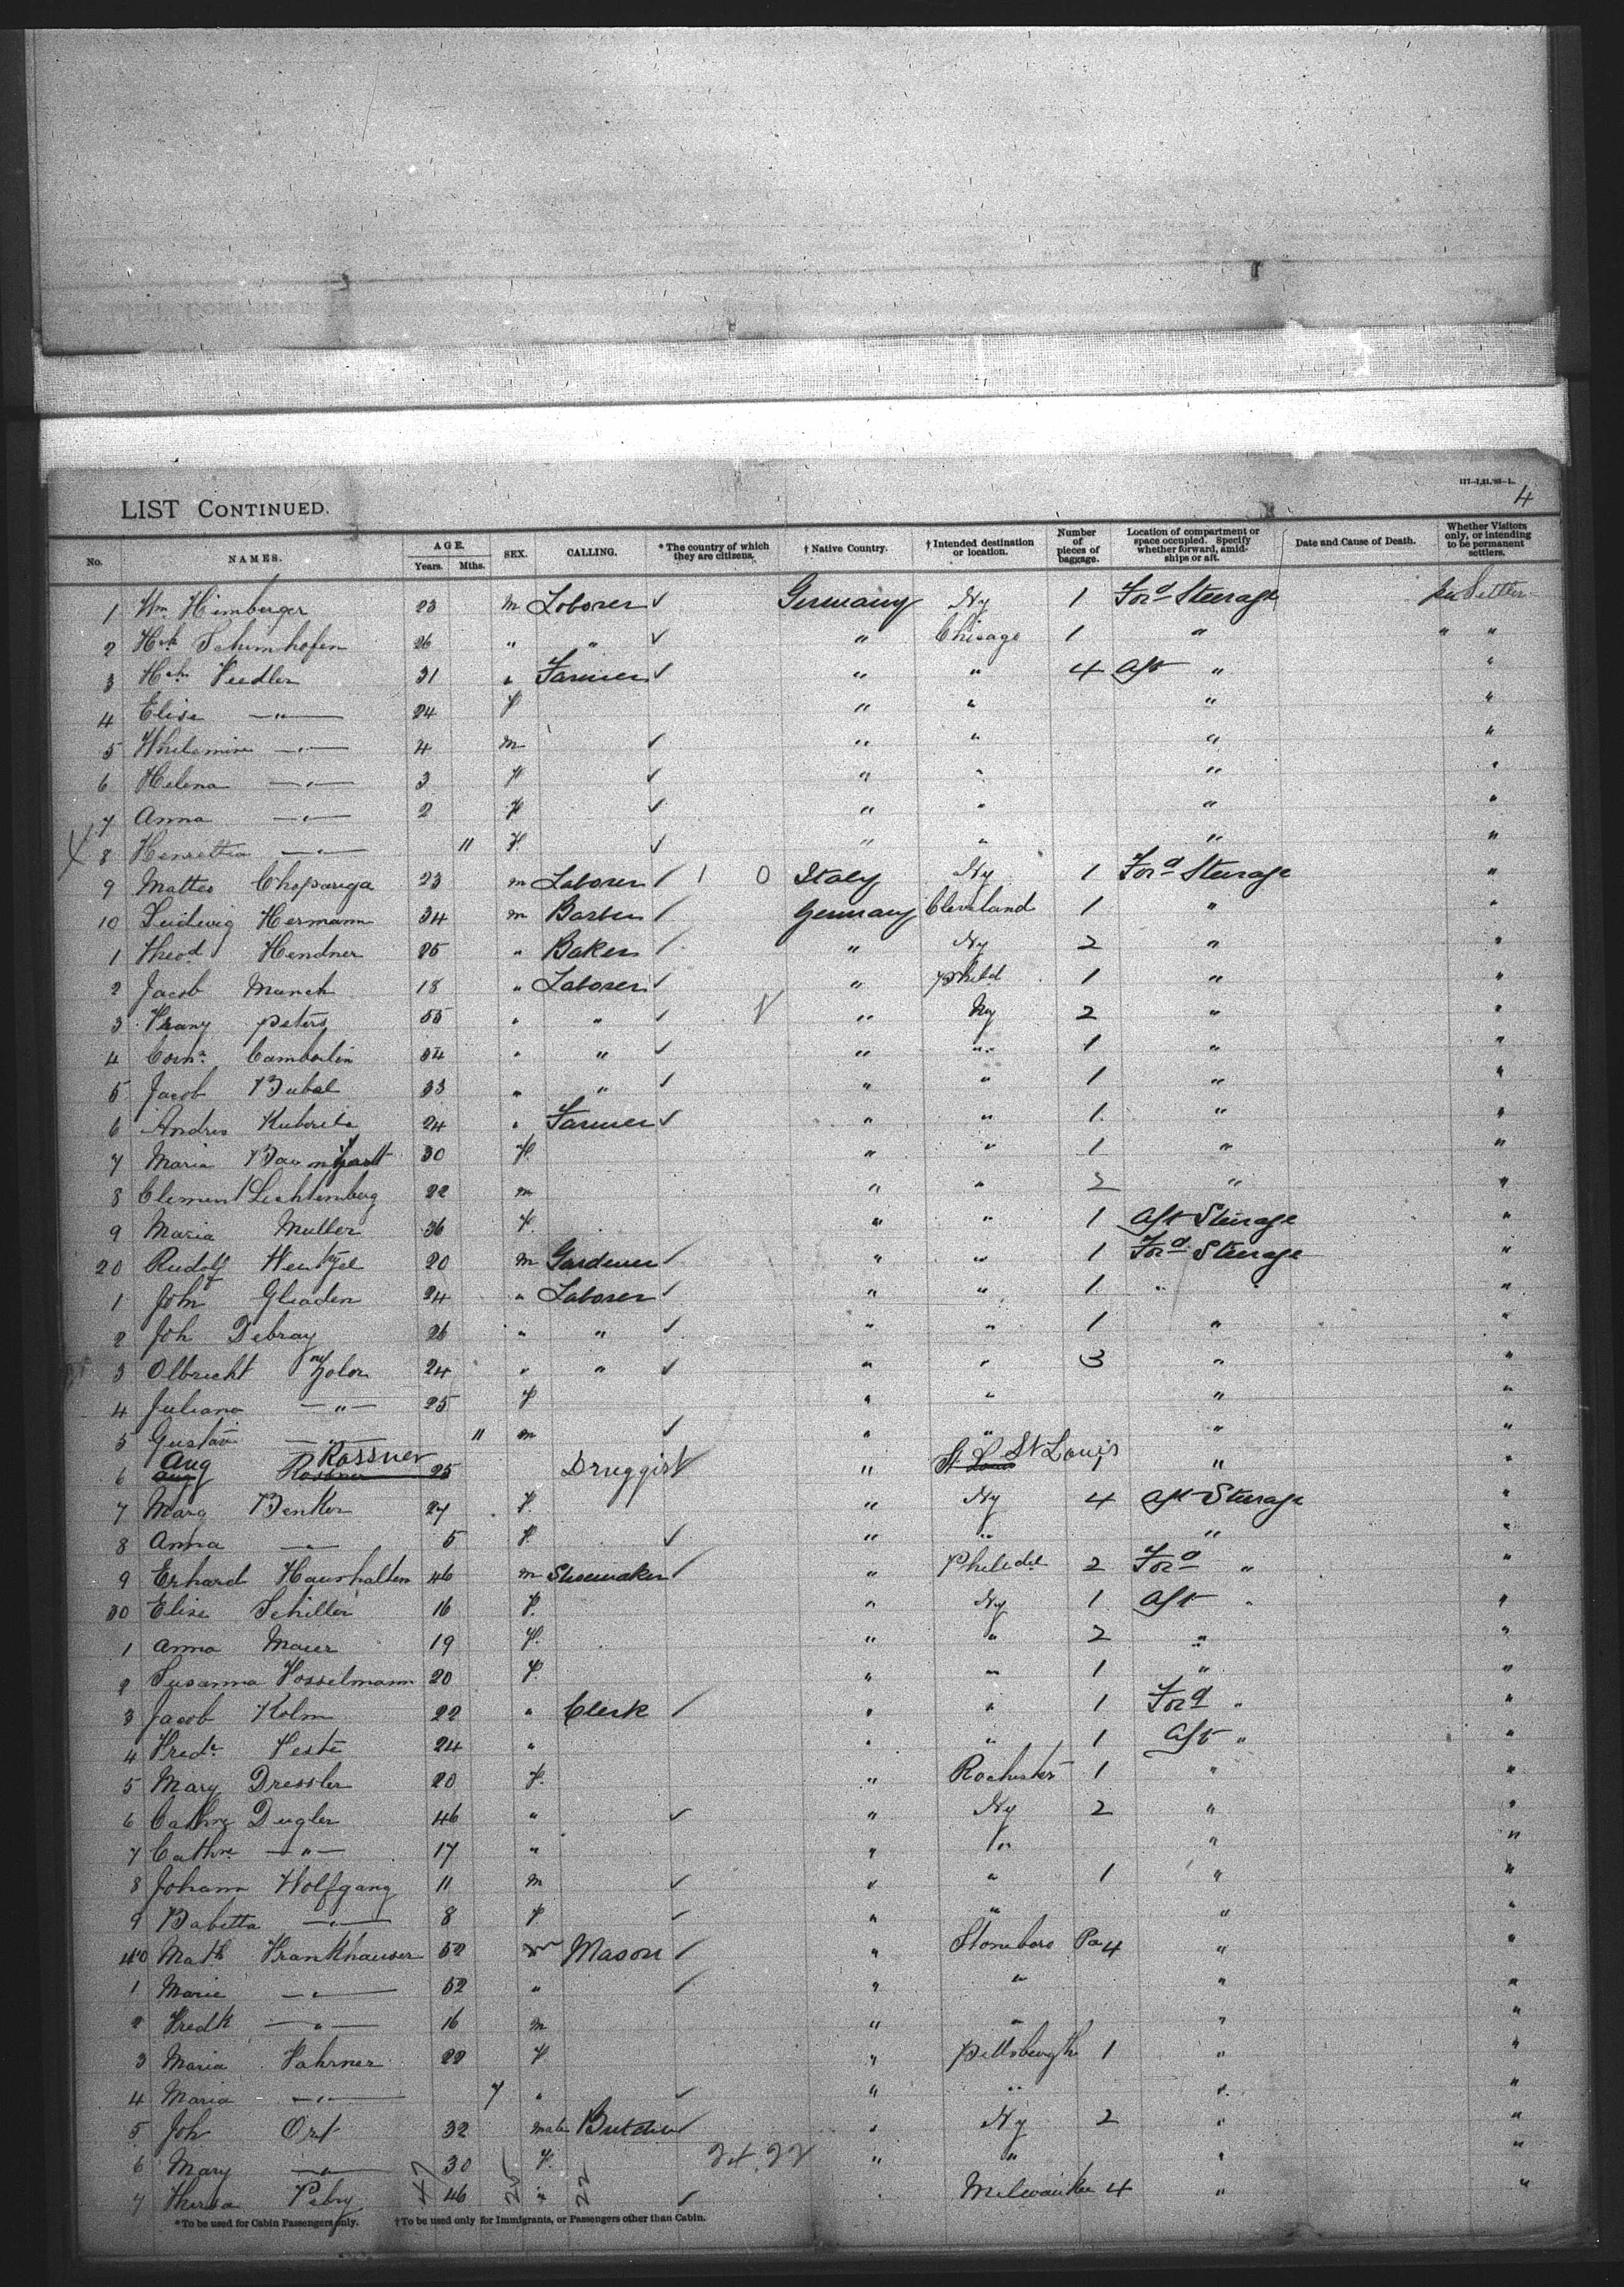 117-1,21,'93-1.
4
LIST CONTINUED.
No. NAMES. AGE. Years. Mths. SEX. CALLING. * The country of which they are citizens. † Native Country. † Intended destination or location. Number of pieces of baggage. Location of compartment or space occupied. Specify whether forward, amidships or aft. Date and Cause of Death. Whether Visitors only, or intending to be permanent settlers.
1 Wm Himberger 23 m Laborer ✓ Germany Ny 1 Ford Steerage
2 Hch Schimhofen 26 " " ✓ " Chicago 1 " " "
3 Hch Feedler 31 " Farmer ✓ " " 4 Aft " "
4 Elise —"— 24 f " " " "
5 Whilemine —"— 4 m ✓ " " " "
6 Helena —"— 3 f ✓ " " " "
7 Anna —"— 2 f ✓ " " " "
8 Henrettia —"— 11 f ✓ " " " "
9 Matteo Chopariga 23 m Laborer ✓ 1 0 Italy Ny 1 Ford Steerage "
10 Ludwig Hermann 34 m Barber ✓ Germany Cleveland 1 " "
1 Theod Hendner 25 " Baker ✓ " Ny 2 " "
2 Jacob Munch 18 " Laborer ✓ " Philad 1 " "
3 Franz Peters 55 " " ✓ " Ny 2 " "
4 Corn. Camberlin 34 " " ✓ " " 1 " "
5 Jacob Bubel 33 " " ✓ " " 1 " "
6 Andres 24 " Farmer ✓ " " 1 " "
7 Maria 30 f " " 1 " "
8 Clement Lichtemberg 22 m " " 2 " "
9 Maria Muller 36 f. " " 1 Aft Steerage "
20 Rudolf Wentzel 20 m Gardener ✓ " " 1 Ford Steerage "
1 John Gliaden 24 " Laborer ✓ " " 1 " "
2 Joh Debray 26 " " ✓ " " 1 " "
3 Olbrecht 24 " " ✓ " " 3 " "
4 Juliana —"— 25 f " " " "
5 Gustav —"— 11 m ✓ " " " "
6 Aug Rossner 25 Druggist ✓ " St Louis 1 " "
7 Marg Benker 27 f. " Ny 4 Aft Steerage "
8 Anna —"— 5 f. ✓ " " " "
9 Erhard Haushalten 46 m Shoemaker ✓ " Philadel 2 Ford " "
30 Elise Schiller 16 f. " Ny 1 Aft " "
1 Anna Maier 19 f. " " 2 " "
2 Susanna Hosselmann 20 f. " " 1 " "
3 Jacob Kolm 22 " Clerk ✓ " " 1 Ford " "
4 Fredr Feste 24 " " " 1 Aft " "
5 Mary Dressler 20 f. " Rochester 1 " "
6 Dugler 46 " ✓ " Ny 2 " "
7 Cathne —"— 17 " " " " "
8 Johann Wolfgang 11 m ✓ " " 1 " "
9 Babetta —"— 8 f ✓ " " " "
40 Math Frankhauser 52 m Mason ✓ " Stoneboro Pa 4 " "
1 Marie —"— 52 " ✓ " " " "
2 Fredk —"— 16 m " " " "
3 Maria Fahrner 22 f " Pittsburgh 1 " "
4 Maria —"— 7 " ✓ " " " "
5 Joh Ort 32 male Butcher ✓ " Ny 2 " "
6 Mary —"— 30 f. " " " "
7 Theresa Petry 46 " ✓ Milwaukee 4 " "
* To be used for Cabin Passengers only. † To be used only for Immigrants, or Passengers other than Cabin.